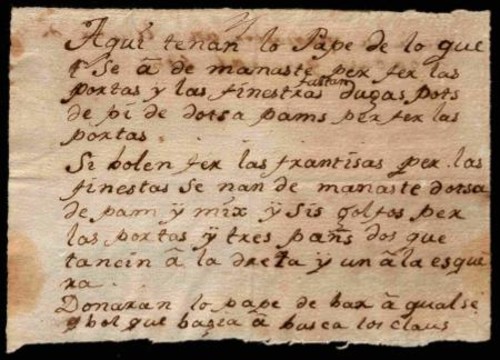 Aqui tenan lo Pape de lo que
se â de manaste per fer las
portas y las finestras fustam dugas pots
de pi de dotsa pams per fer las
portas.
Si bolen fer las frantisas per las
finestas se nan de manaste dotsa
de pam ÿ mix ÿ sis golfos per
las portas ÿ tres pañs dos que
tancin â la dreta ÿ un â la esque
ra.
Donaran lo pape de bax â qualse
bol que bagia â busca los claus